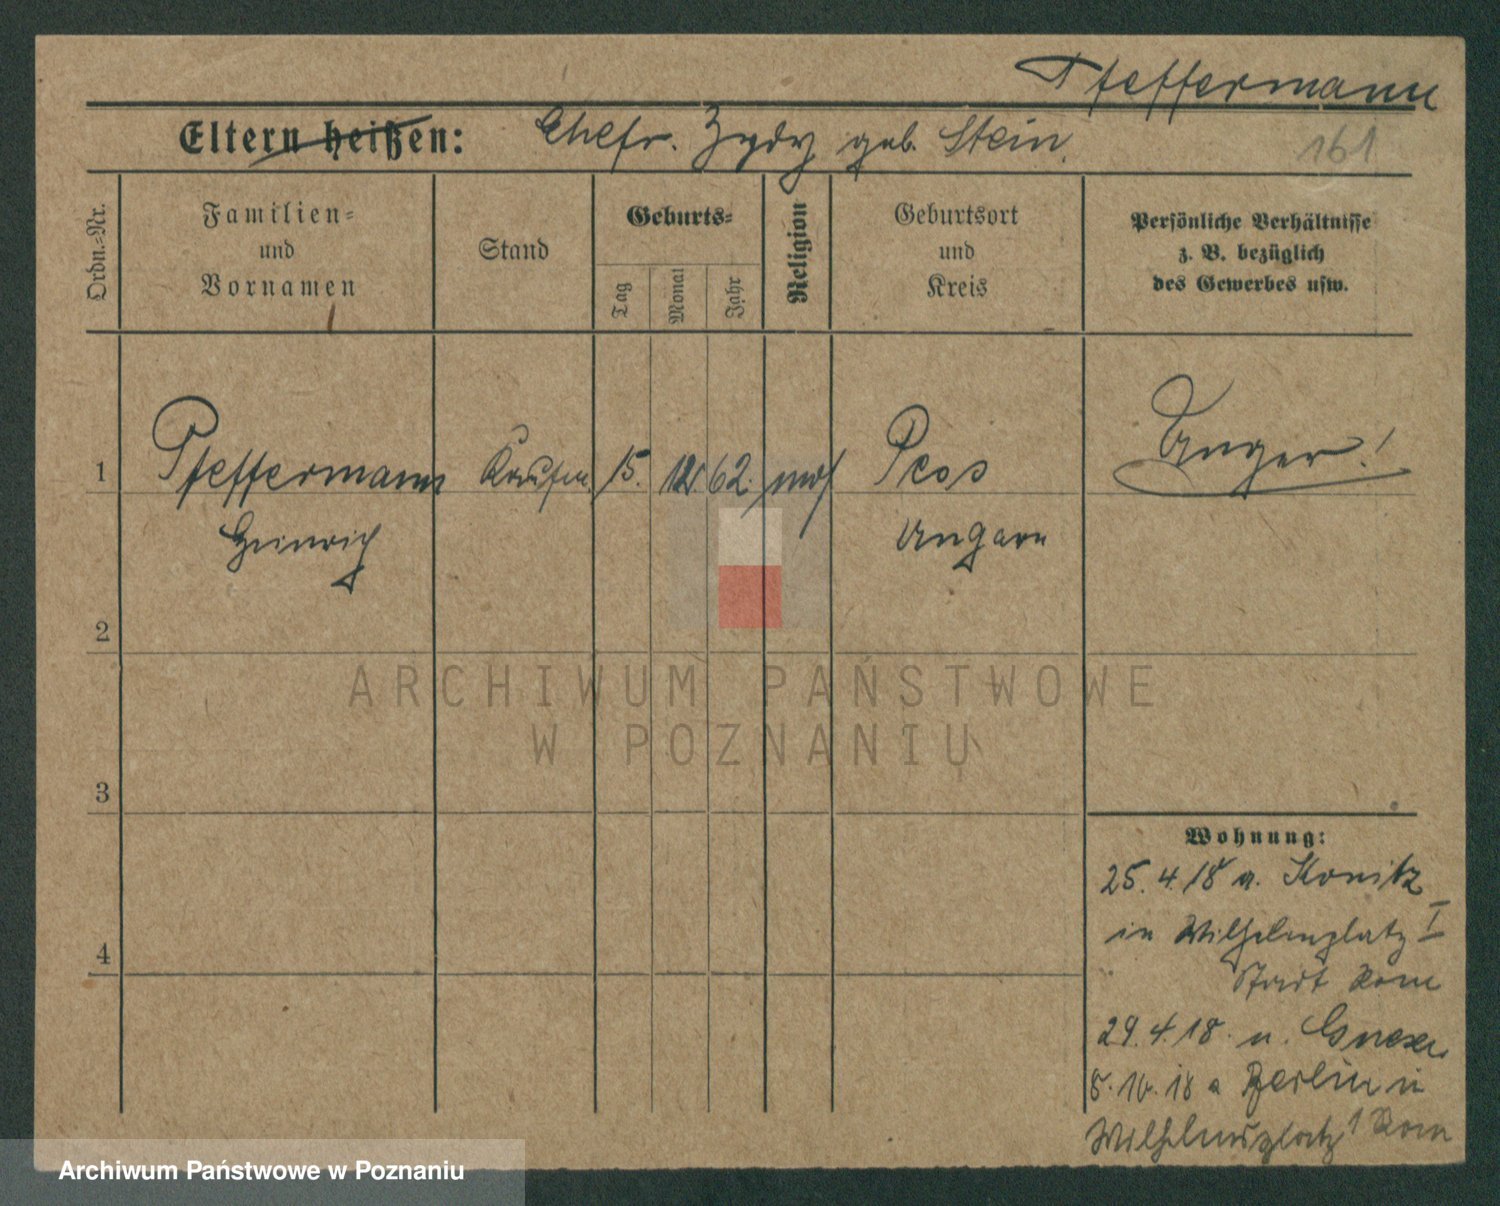 Pfeffermann
Eltern heißen: Ehefr. geb. Stein.
161
Ordn.-Nr.
Familien-
und
Vornamen
Stand
Geburts-
Tag
Monat
Jahr
Religion
Geburtsort
und
Kreis
Persönliche Verhältnisse
z. B. bezüglich
des Gewerbes usw.
1 Pfeffermann Kaufm. 15. 12. 62. mos Pecs Unger!
Heinrich Ungarn
2
3
4
ARCHIWUM PAŃSTWOWE
W POZNANIU
Wohnung:
25.4.18 a. Konitz
in Wilhelmplatz I
Stadt Rom
29.4.18. n. Gnesen
8.10.18 a Berlin in
Wilhelmsplatz 1 Rom
Archiwum Państwowe w Poznaniu